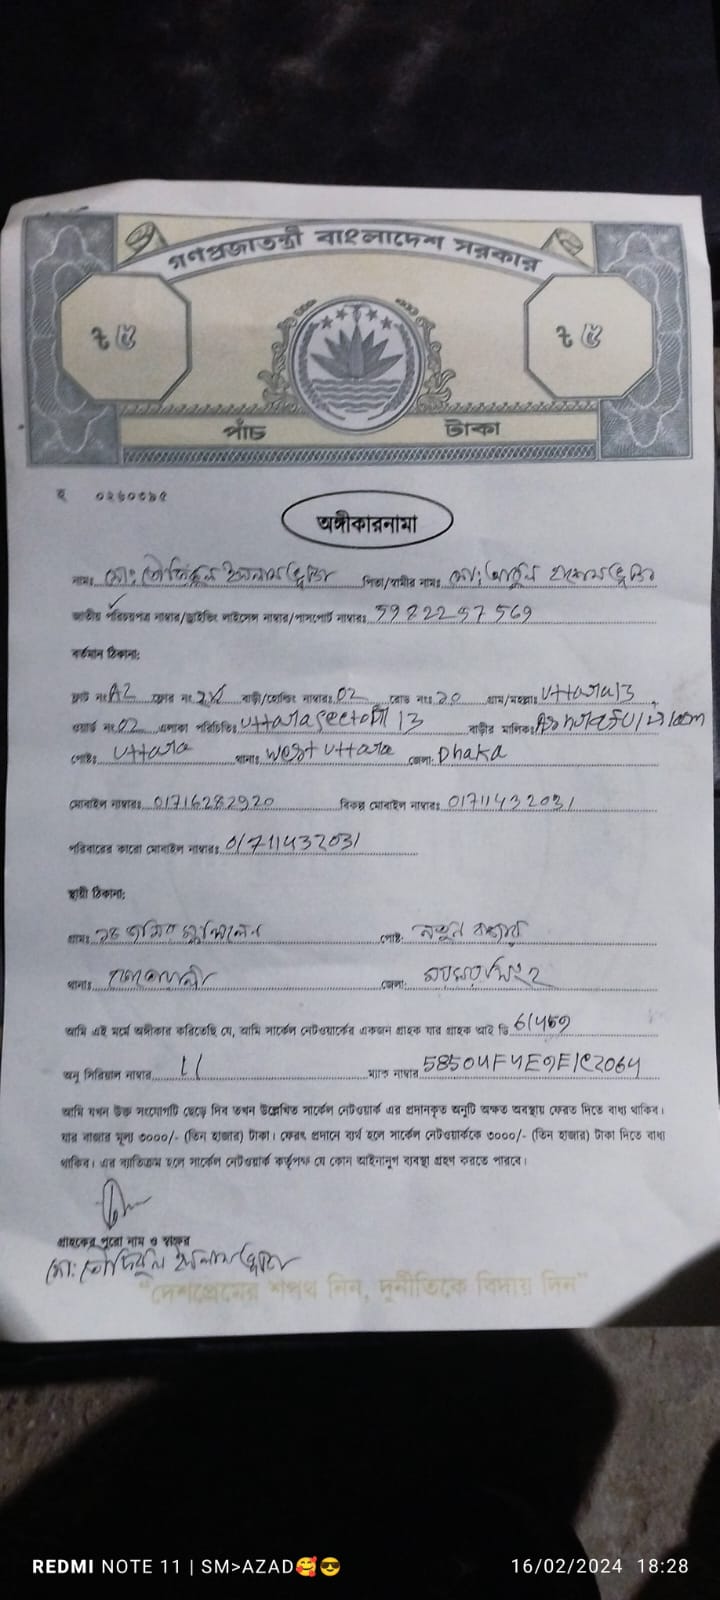 গণপ্রজাতন্ত্রী বাংলাদেশ সরকার
৳ ৫ ৳ ৫
পাঁচ টাকা
হ ০২৬০৩৯৫
অঙ্গীকারনামা
নামঃ মোঃ তৌফিকুল ইসলাম পিতা/স্বামীর নামঃ মোঃ
জাতীয় পরিচয়পত্র নাম্বার/ড্রাইভিং লাইসেন্স নাম্বার/পাসপোর্ট নাম্বারঃ 5982297569
বর্তমান ঠিকানা:
ফ্লাট নংঃ A2 ফ্লোর নং বাড়ী/হোল্ডিং নাম্বারঃ 02 রোড নংঃ 20 গ্রাম/মহল্লাঃ Uttara 13
ওয়ার্ড নং 02 এলাকা পরিচিতিঃ Uttara sector 13 বাড়ীর মালিকঃ
পোষ্টঃ Uttara থানাঃ west uttara জেলা: Dhaka
মোবাইল নাম্বারঃ 01716282920 বিকল্প মোবাইল নাম্বারঃ 01711432031
পরিবারের কারো মোবাইল নাম্বারঃ 01711432031
স্থায়ী ঠিকানা:
গ্রামঃ পোষ্ট: নতুন বাজার
থানাঃ কোতোয়ালী জেলা: ময়মনসিংহ
আমি এই মর্মে অঙ্গীকার করিতেছি যে, আমি সার্কেল নেটওয়ার্কের একজন গ্রাহক যার গ্রাহক আই ডি
অনু সিরিয়াল নাম্বার 11 ম্যাক নাম্বার
আমি যখন উক্ত সংযোগটি ছেড়ে দিব তখন উল্লেখিত সার্কেল নেটওয়ার্ক এর প্রদানকৃত অনুটি অক্ষত অবস্থায় ফেরত দিতে বাধ্য থাকিব।
যার বাজার মূল্য ৩০০০/- (তিন হাজার) টাকা। ফেরৎ প্রদানে ব্যর্থ হলে সার্কেল নেটওয়ার্ককে ৩০০০/- (তিন হাজার) টাকা দিতে বাধ্য
থাকিব। এর ব্যতিক্রম হলে সার্কেল নেটওয়ার্ক কর্তৃপক্ষ যে কোন আইনানুগ ব্যবস্থা গ্রহণ করতে পারবে।
গ্রাহকের পুরো নাম ও স্বাক্ষর
মোঃ তৌফিকুল ইসলাম
"দেশপ্রেমের শপথ নিন, দুর্নীতিকে বিদায় দিন"
REDMI NOTE 11 | SM>AZAD🥰😎 16/02/2024 18:28